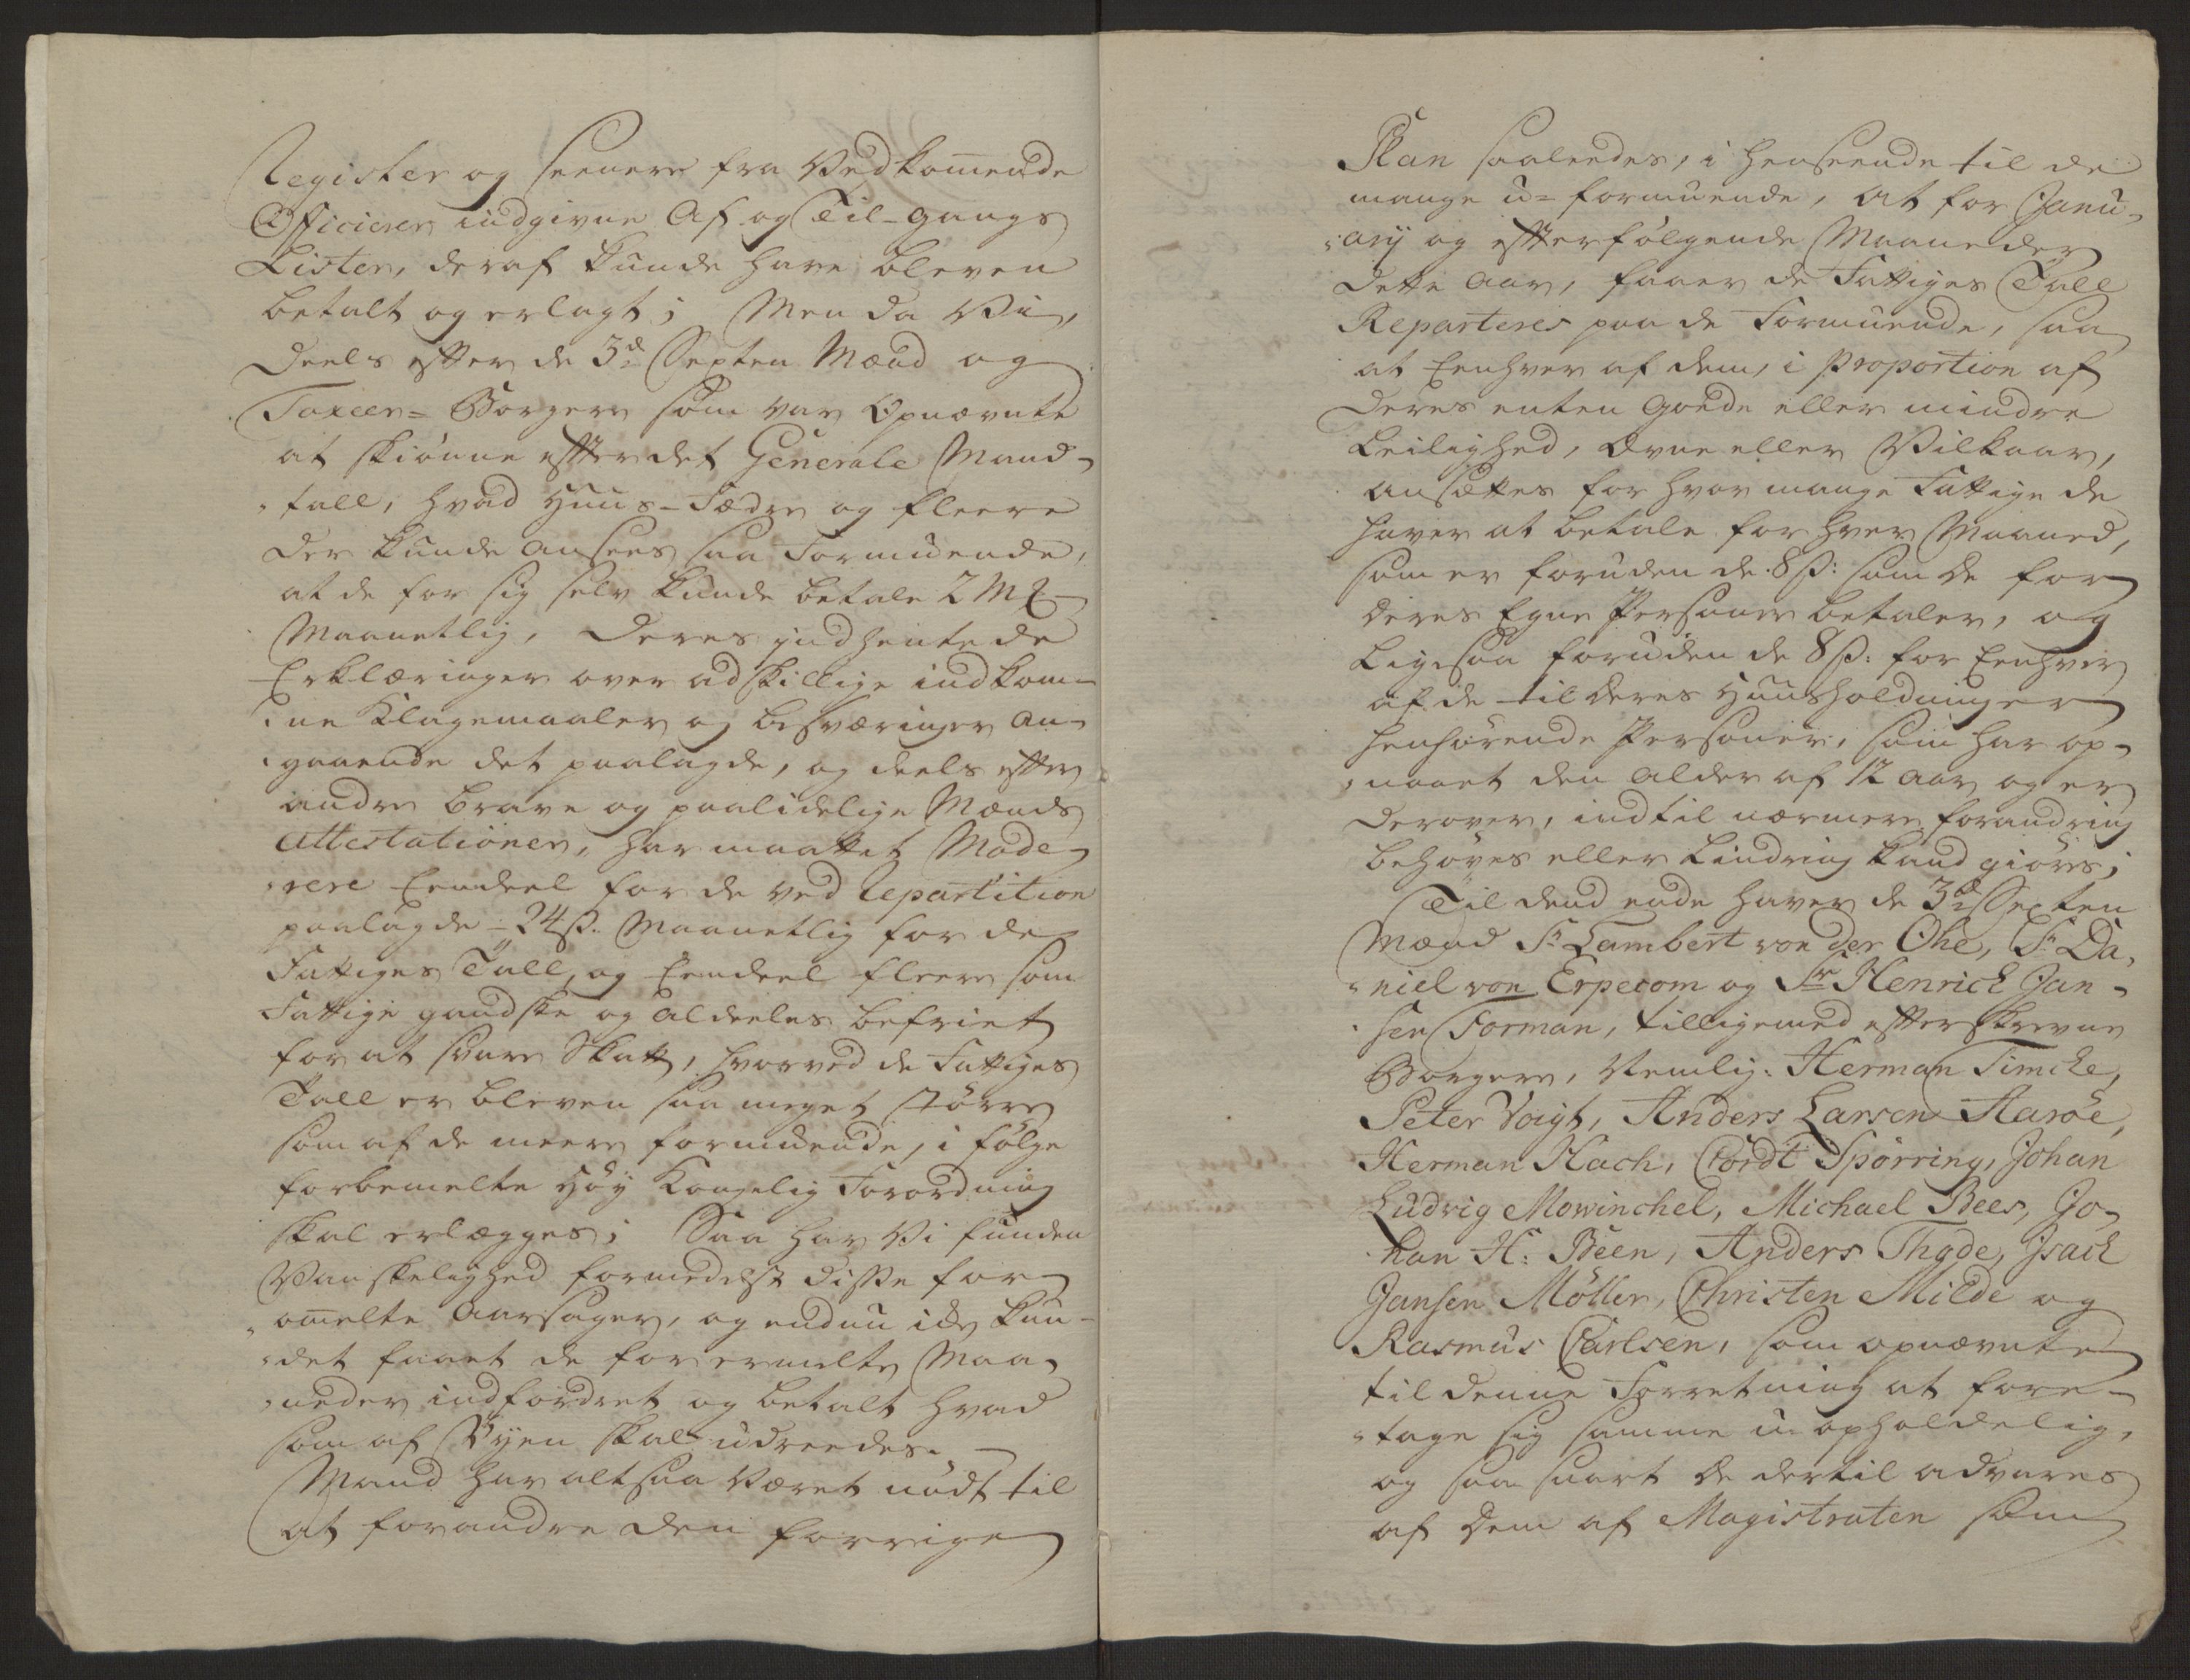 Register og seenere fra Vedkom̄ende
Officierer indgivne Af og Til-gangs
Lister, deraf kunde have bleven
betalt og erlagt; Men da Vi,
deels efter de 3de Sexten Mænd og
Taxeer= Borgere som var Opnævnte
at skiönne efter det Generale Mand-
tall, hvad Huus-Fædre og fleere
der kunde ansees saa Formuende,
at de for sig selv kunde betale 2 Mk
Maanetlig, deres indhentede
Erklæringer over adskillige indkom-
ne Klagemaaler og besværinger an-
gaaende det paalagde, og deels efter
andre brave og paalidelige Mænds
Attestationer, har maattet Mode-
rere Eendeel for de ved Repartition
paalagde - 24 ß. Maanetlig for de
Fattiges Tall, og Eendeel fleere som
Fattige gandske og aldeeles befriet
for at svare Skatt, hvorved de Fattiges
Tall er bleven saa meget större
som af de meere formuende, i fölge
forbemelte Höy Kongelig Forordning
skal erlægges; Saa har Vi funden
Vanskelighed formedelst disse for
om̄elte Aarsager, og endnu icke kun-
det faaet de for ermelte Maa-
neder indfordret og betalt hvad
som af Byen skal udreedes.
Mand har altsaa været nödt til
at forandre den forrige
Plan saaleedes, i henseende til de
mange u= formuende, at for Janu-
arij og efterfölgende Maaneder
dette Aar, faaer de Fattiges Tall
Reparteres paa de Formuende, saa
at Eenhver af dem, i Proportion af
deres enten Goede eller mindre
Leilighed, Ævne eller Vilkaar,
ansættes for hvor mange Fattige de
haver at betale for hver Maaned,
som er foruden de 8 ß: som de for
deres Egne Personer betaler, og
Ligesaa foruden de 8 ß: for Eenhver
af de til deres Huusholdninger
henhörende Personer, som har op-
naaet den Alder af 12 Aar og er
derover, indtil nærmere forandring
behöves eller Lindring kand giöres;
Til dend ende haver de 3de Sexten
Mænd Sr. Lambert von der Ohe, Sr. Da-
niel von Erpecom og Sr. Henrich Jan-
sen Forman, tilligemed efterskrevne
Borgere, Nemlig: Herman Timche,
Peter Voigt, Anders Larsen Aaröe,
Herman Hach, Cordt Spörring, Johan
Ludvig Mowinchel, Michael Bees, Jo-
han H: Been, Anders Thode, Isach
Jansen Möller, Christen Milde og
Rasmus Carlsen, som opnævnte
til denne Forretning at fore-
tage sig samme u-opholdelig,
og saa snart de dertil advares
af dem af Magistraten som